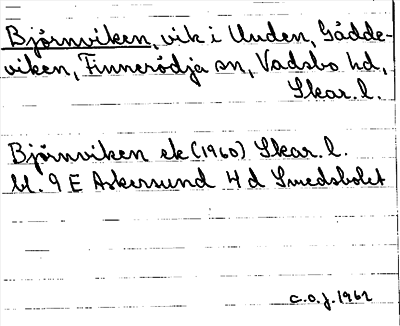 Björnviken, vik i Unden, Gädde-
viken, Finnerödja sn, Vadsbo hd,
Skar. l.
Björnviken ek (1960) Skar. l.
bl. 9 E Askersund 4 d Smedsbolet
c.o.j. 1962